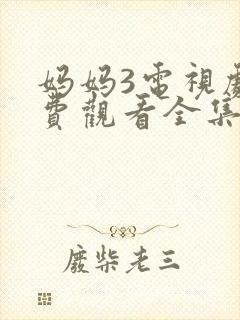 妈妈3電視劇
費觀看全集
廢柴老三